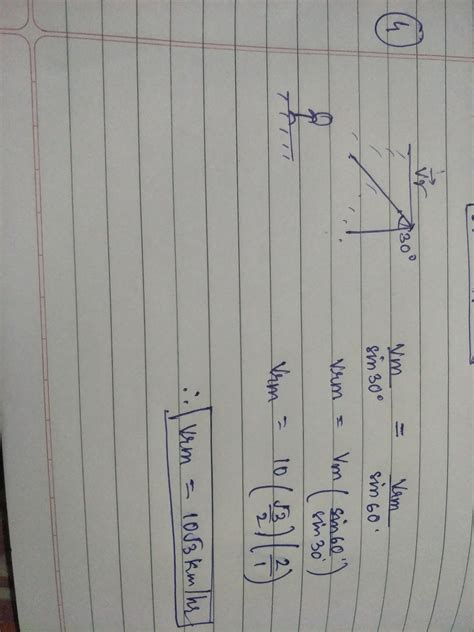 4
Vr
30°
Vm/sin30° = Vrm/sin60°
Vrm = Vm (sin60°/sin30°)
Vrm = 10 (√3/2) (2/1)
∴ Vrm = 10√3 km/hr